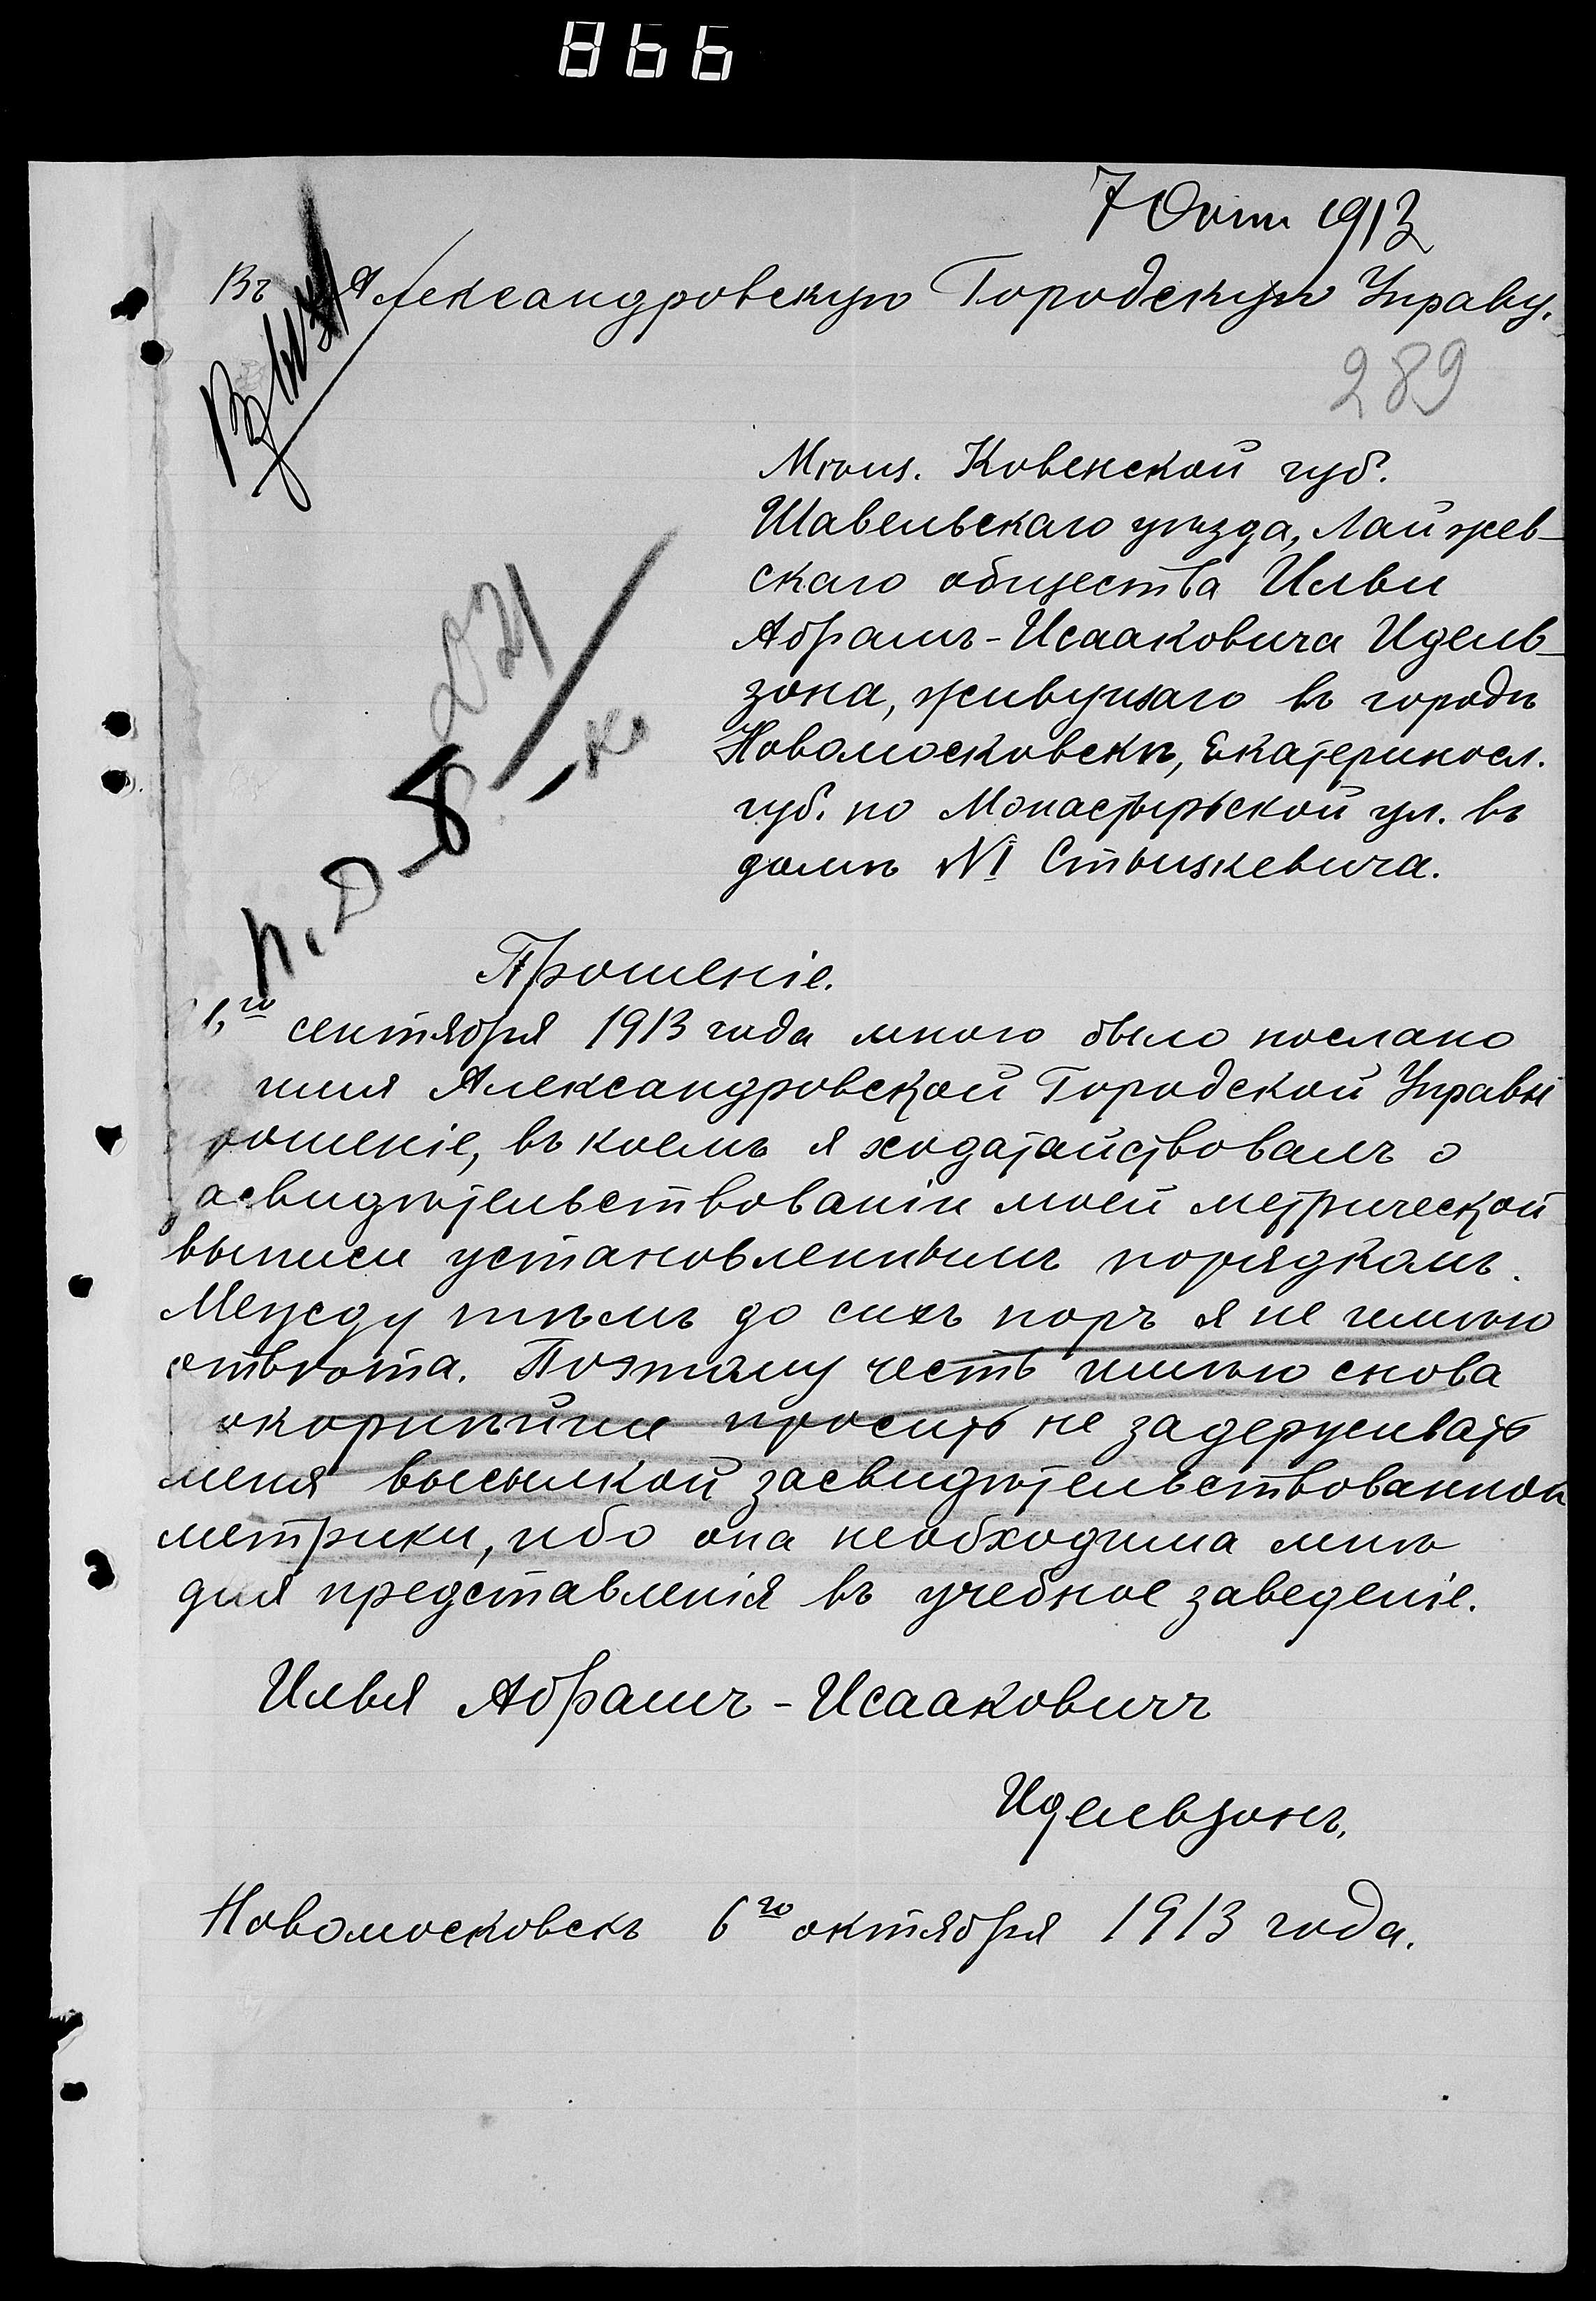 866
7 Окт 1913
Въ Александровскую Городскую Управу.
289
Мѣщ. Ковенской губ.
Шавельскаго уѣзда, Лайжев-
скаго общества Ильи
Абрамъ-Исааковича Идель-
зона, живущаго въ городѣ
Новомосковскѣ, Екатериносл.
губ. по Монастырьской ул. въ
домѣ №1
Прошеніе.
1,го сентября 1913 года мною было послано
имя Александровской Городской Управы
рошеніе, въ коемъ я ходатайствовалъ о
асвидѣтельствованіи моей метрической
выписи установленнымъ порядкомъ.
Между тѣмъ до сихъ поръ я не имѣю
отвѣта. Поэтому честь имѣю снова
окорнѣйше просить не задерживать
меня высылкой засвидѣтельствованной
метрики, ибо она необходима мнѣ
для представленія въ учебное заведеніе.
Илья Абрамъ-Исааковичъ
Идельзонъ.
Новомосковскъ 6го октября 1913 года.